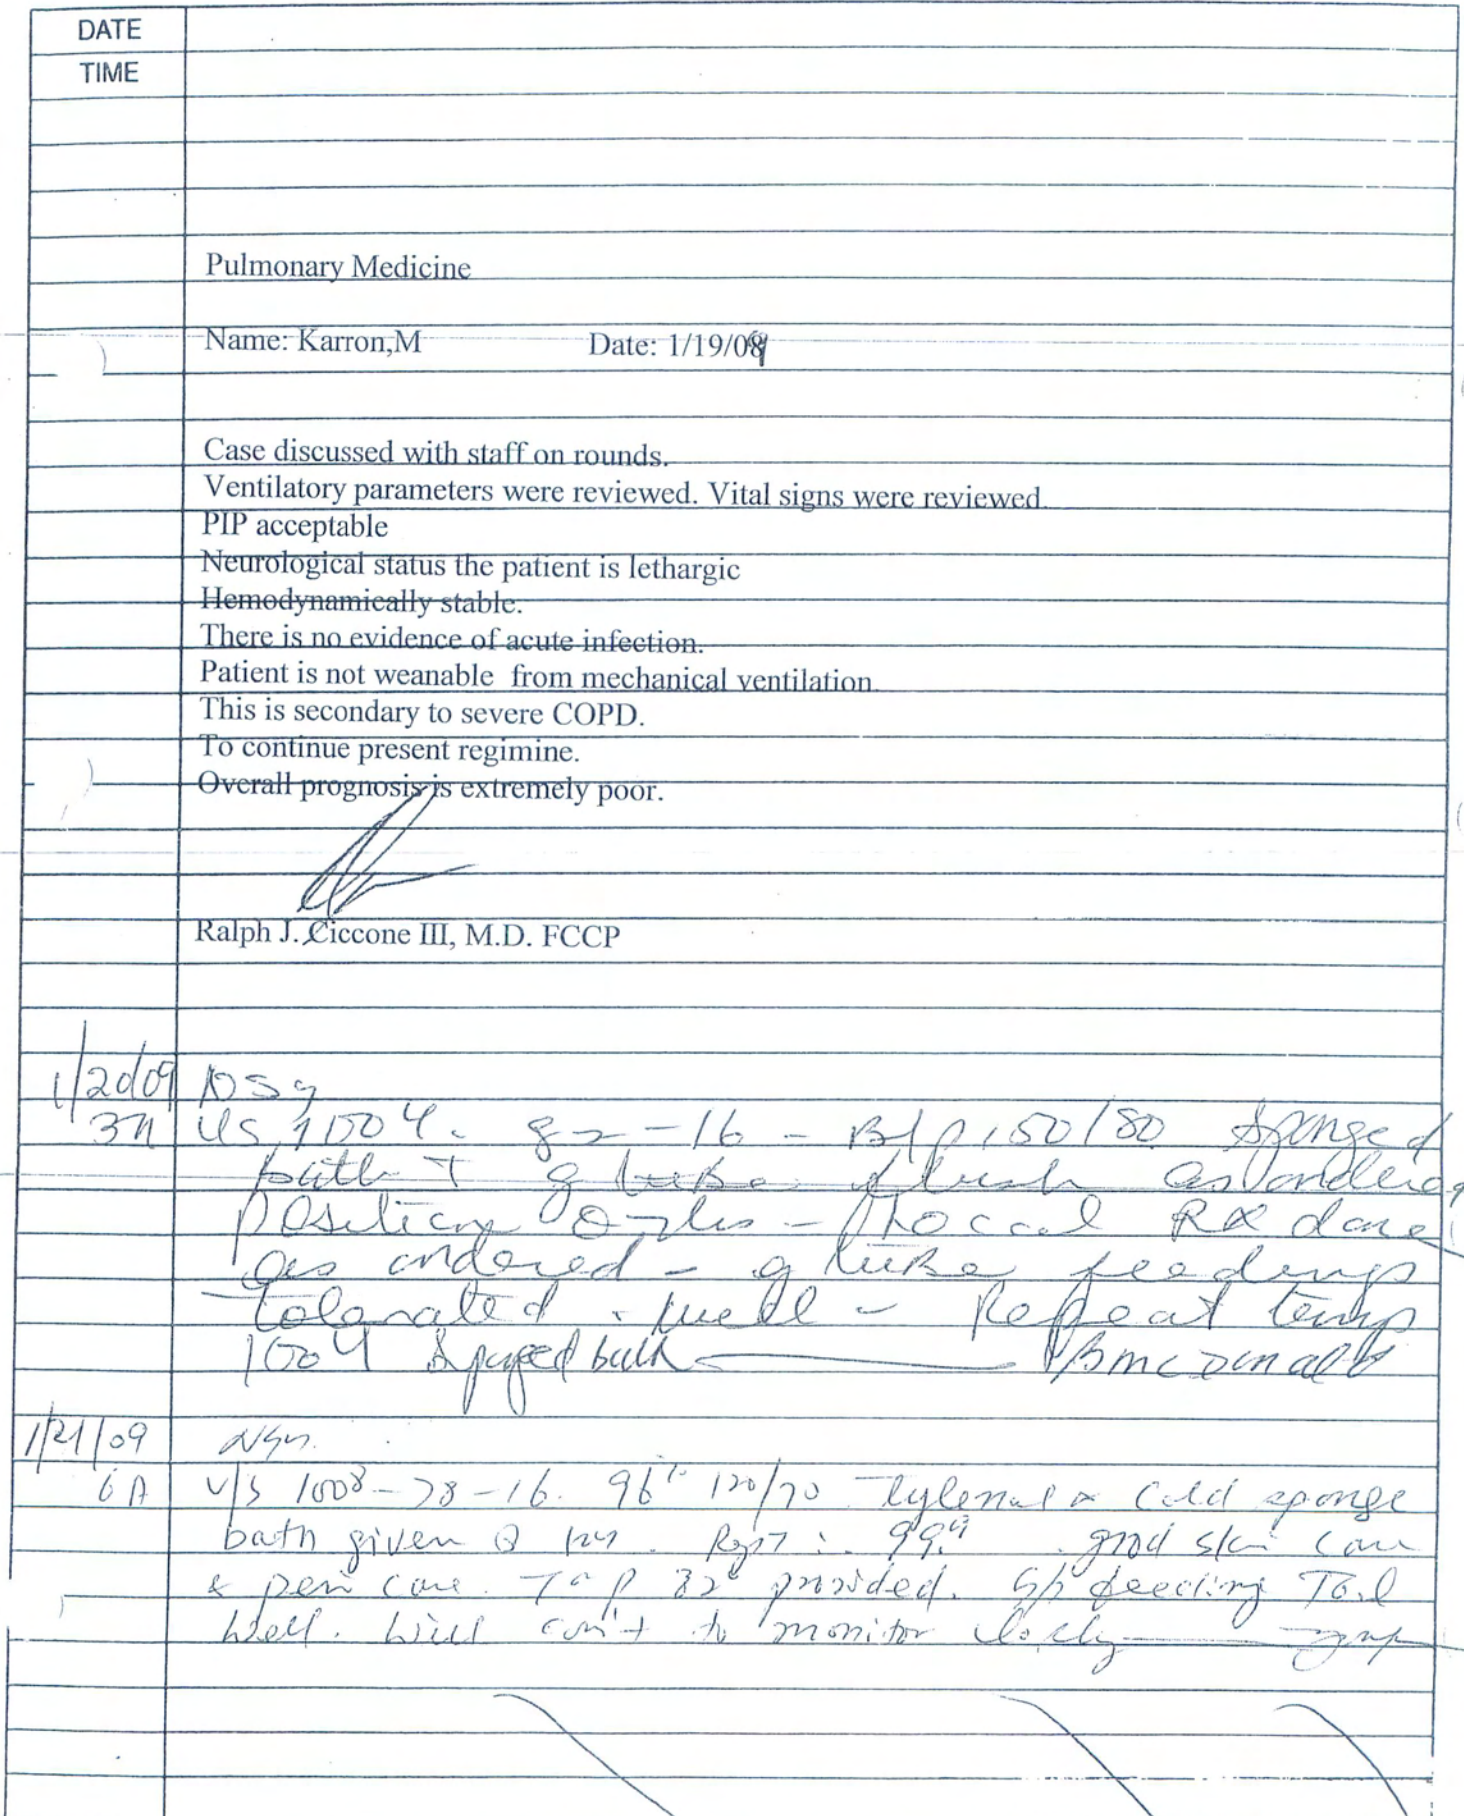 DATE
TIME
Pulmonary Medicine
Name: Karron,M Date: 1/19/09
Case discussed with staff on rounds.
Ventilatory parameters were reviewed. Vital signs were reviewed.
PIP acceptable
Neurological status the patient is lethargic
Hemodynamically stable.
There is no evidence of acute infection.
Patient is not weanable from mechanical ventilation.
This is secondary to severe COPD.
To continue present regimine.
Overall prognosis is extremely poor.
Ralph J. Ciccone III, M.D. FCCP
1/20/09
VS 100⁴ - 82 - 16 - B/P 150/80 Sponged
bath + g tube flush as ordered
Position - Rx done
as ordered - g tube feedings
tolerated well - Repeat temp
100⁴ Sponged bath B McDonald
1/21/09 Nsg.
6A V/S 100⁸ - 78 - 16. 120/70 Tylenol & cold sponge
bath given 99.⁹ good skin care
& peri care. T & P provided. feeding Tol
well. Will con't to monitor closely